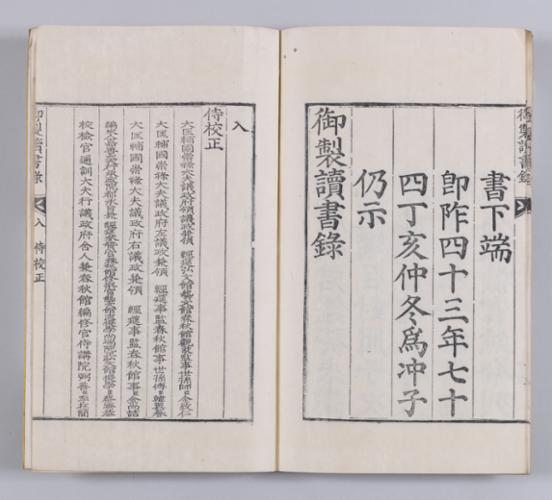 御製讀書錄
書下端
即阼四十三年七十
四丁亥仲冬爲冲子
仍示
御製讀書錄
入
侍校正
大匡輔國崇祿大夫議政府領議政兼領 經筵弘文館藝文館春秋館觀象監事臣金致仁
大匡輔國崇祿大夫議政府左議政兼領 經筵事監春秋館事世孫傅臣韓翼謩
大匡輔國崇祿大夫議政府右議政兼領 經筵事監春秋館事臣金尙喆
校檢官通訓大夫行議政府舍人兼春秋館編修官侍講院弼善臣李在簡
御製讀書錄 入 侍校正